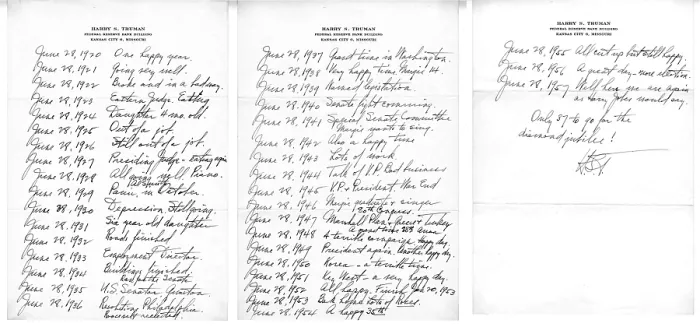 HARRY S. TRUMAN
FEDERAL RESERVE BANK BUILDING
KANSAS CITY 6, MISSOURI
June 28, 1920 One happy year.
June 28, 1921 Going very well.
June 28, 1922 Broke and in a bad way.
June 28, 1923 Eastern Judge. Eating
June 28, 1924 Daughter 4 mo. old.
June 28, 1925 Out of a job.
June 28, 1926 Still out of a job.
June 28, 1927 Presiding Judge - eating again
June 28, 1928 All going well. Piano.
June 28, 1929 Panic, in October.
June 28, 1930 Depression. Still going.
June 28, 1931 Six year old daughter
June 28, 1932 Roads finished
June 28, 1933 Employment Director.
June 28, 1934 Buildings finished.
Ran for the Senate
June 28, 1935 U.S. Senator. Gunston
June 28, 1936 Resolutions Philadelphia.
Roosevelt reelected
HARRY S. TRUMAN
FEDERAL RESERVE BANK BUILDING
KANSAS CITY 6, MISSOURI
June 28, 1937 Grand time in Washington.
June 28, 1938 Very happy time. Margie 14.
June 28, 1939 Named legislation.
June 28, 1940 Senate fight coming.
June 28, 1941 Special Senate Committee
Margie wants to sing.
June 28, 1942 Also a happy time
June 28, 1943 Lots of work.
June 28, 1944 Talk of V.P. Bad business
June 28, 1945 V.P. & President War End
June 28, 1946 Margie graduate & singer
80th Congress.
June 28, 1947 Marshall Plan & Greece & Turkey
A grand time 28th Anniv
June 28, 1948 A terrible campaign. Happy day.
June 28, 1949 President again. Another happy day.
June 28, 1950 Korea - a terrible time.
June 28, 1951 Key West - a very happy day.
June 28, 1952 All happy. Finish Jan. 20, 1953
June 28, 1953 Back home. Lots of Roses.
June 28, 1954 A happy 35th
HARRY S. TRUMAN
FEDERAL RESERVE BANK BUILDING
KANSAS CITY 6, MISSOURI
June 28, 1955 All cut up but still happy.
June 28, 1956 A great day - more elation.
June 28, 1957 Well here we are again
as Harry Jobes would say.
Only 37 to go for the
diamond jubilee!
H.S.T.